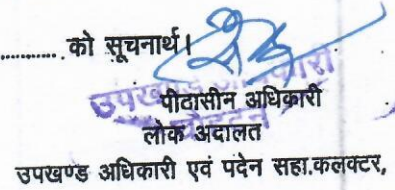 ............ को सूचनार्थ।
उपखण्ड अधिकारी
पीठासीन अधिकारी
लोक अदालत
उपखण्ड अधिकारी एवं पदेन सहा.कलक्टर,